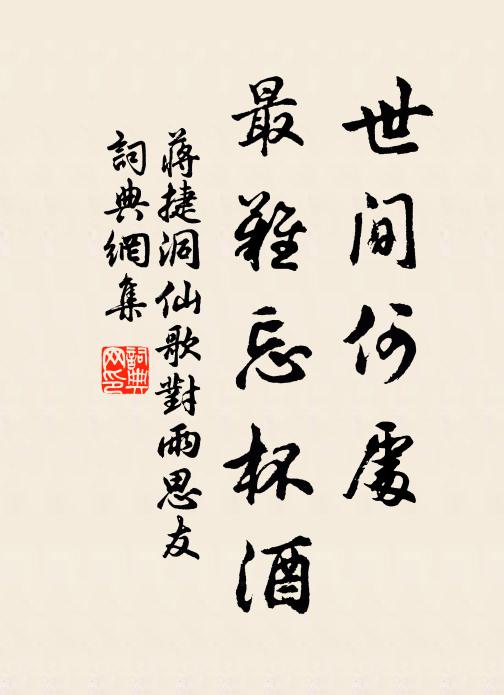 世間何處
最難忘杯酒
蔣捷洞仙歌對雨思友
詞典網集
詞典
网印